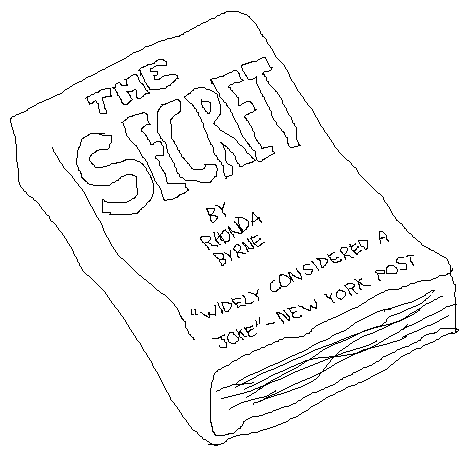 THE
SECRET
BY
RHONDA
BYRNE
"WIDELY CONSIDERED A
JOKE"~NEW YORK POST